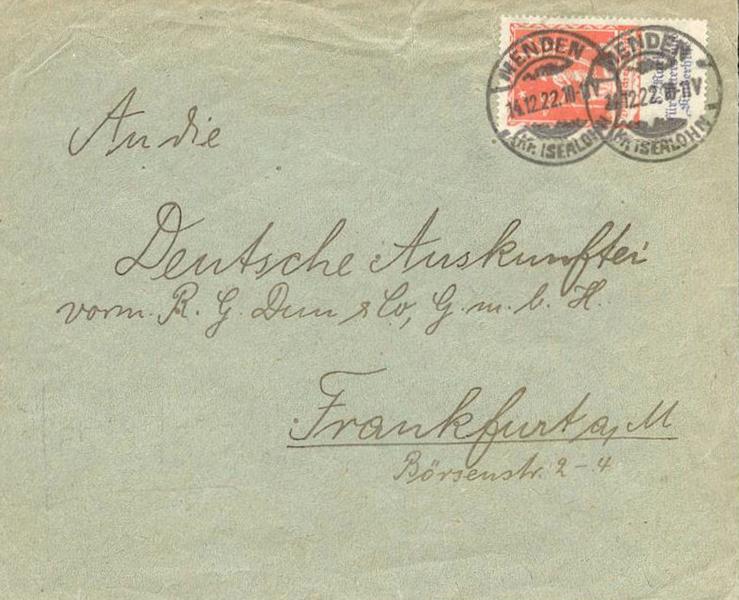 MENDEN
14.12.22.10-11V
(Kr. ISERLOHN)
MENDEN
14.12.22.10-11V
(Kr. ISERLOHN)
An die
Deutsche Auskunftei
vorm. R. G. Dun & Co, G. m. b. H.
Frankfurt a, M
Börsenstr. 2-4